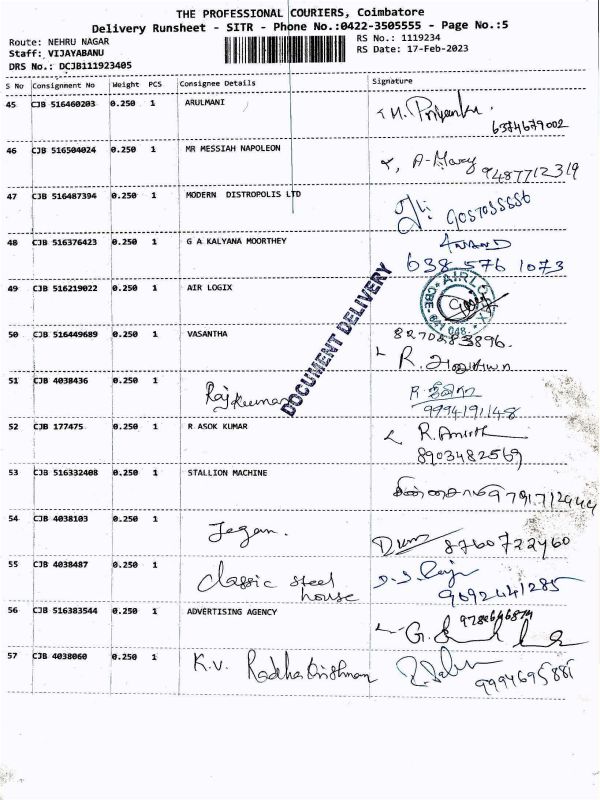 THE PROFESSIONAL COURIERS, Coimbatore
Delivery Runsheet - SITR - Phone No.:0422-3505555 - Page No.:5
Route: NEHRU NAGAR
Staff: VIJAYABANU
DRS No.: DCJB111923405
RS No.: 1119234
RS Date: 17-Feb-2023
S No Consignment No Weight PCS Consignee Details Signature
45 CJB 516460203 0.250 1 ARULMANI M. Priyanka
6374679002
46 CJB 516504024 0.250 1 MR MESSIAH NAPOLEON A-Mary 9487712319
47 CJB 516487394 0.250 1 MODERN DISTROPOLIS LTD
48 CJB 516376423 0.250 1 G A KALYANA MOORTHEY ANAND
638 576 1073
49 CJB 516219022 0.250 1 AIR LOGIX
DOCUMENT DELIVERY
50 CJB 516449689 0.250 1 VASANTHA R.
51 CJB 4038436 0.250 1 Rajkumar R.
9994191148
52 CJB 177475 0.250 1 R ASOK KUMAR R. Amirth
8903482569
53 CJB 516332408 0.250 1 STALLION MACHINE
54 CJB 4038103 0.250 1 Jegan. 8760722460
55 CJB 4038487 0.250 1 Classic steel
house 9092441285
56 CJB 516383544 0.250 1 ADVERTISING AGENCY G.
57 CJB 4038060 0.250 1 K.V. Radhakrishnan
9994695881